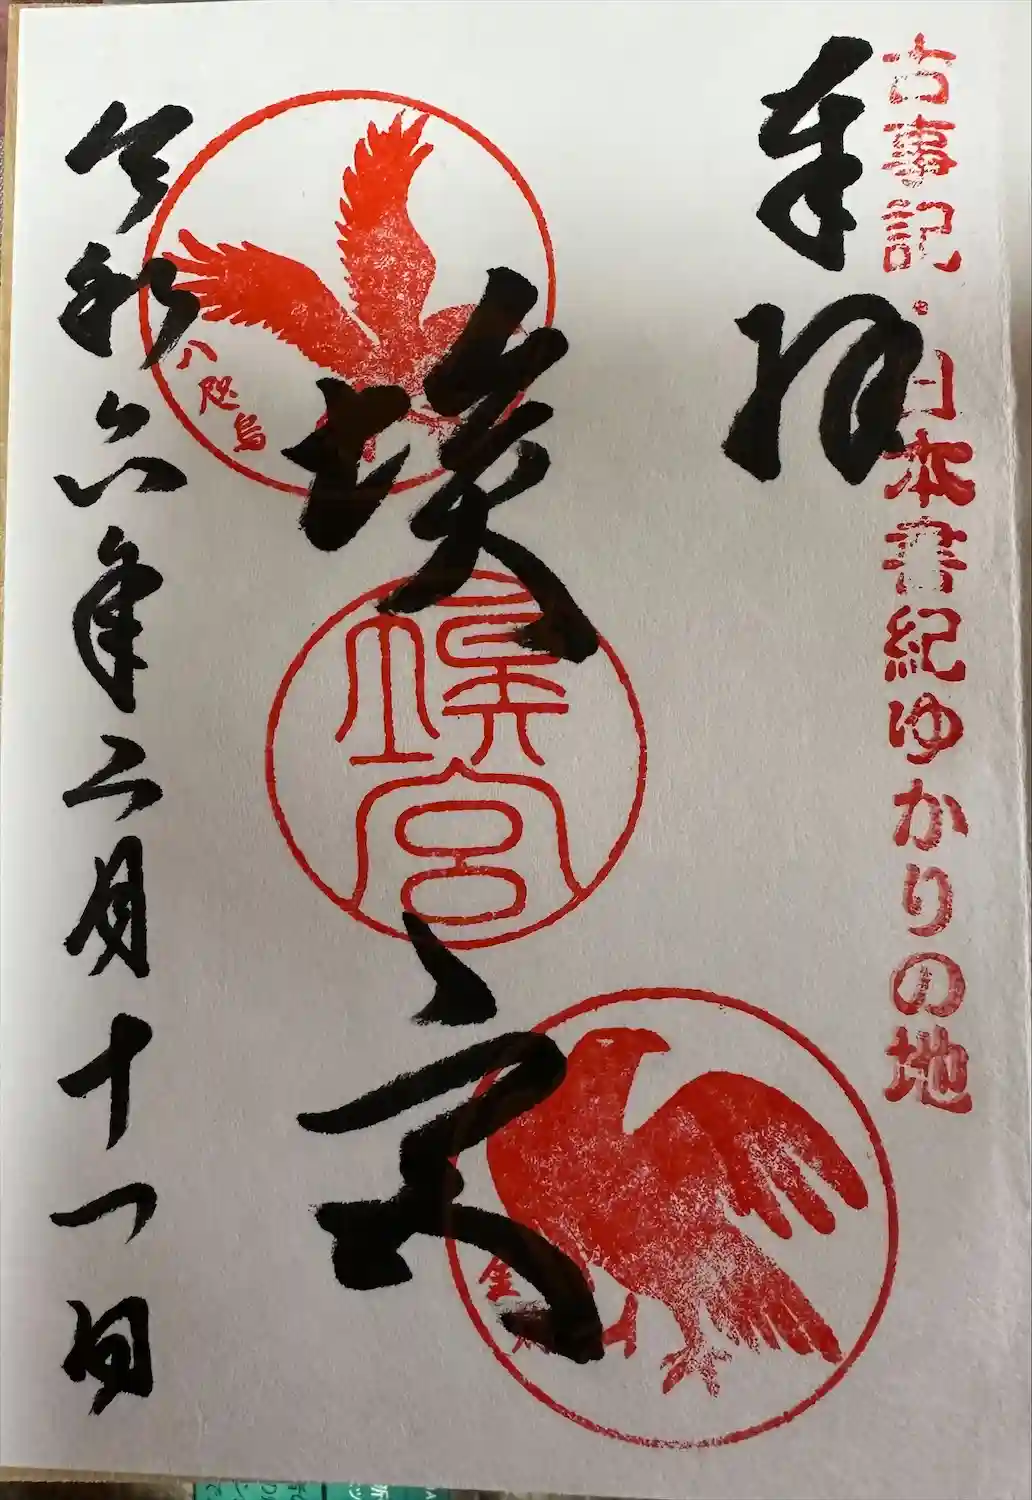 古事記・日本書紀ゆかりの地
奉拝
八咫烏
埃宮
埃宮
金
令和六年二月十一日